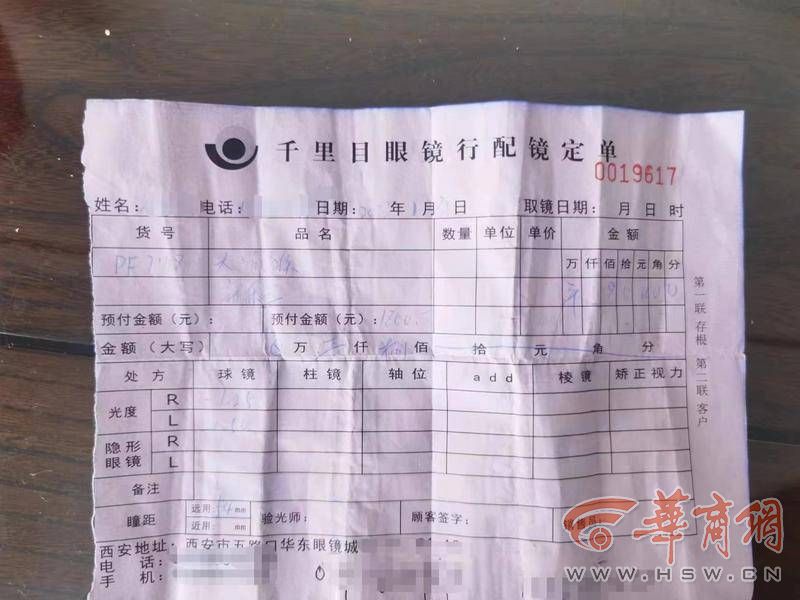 千里目眼镜行配镜定单
0019617
姓名: 电话: 日期: 年 1月 日 取镜日期: 月 日 时
货号 品名 数量 单位 单价 金额
万 仟 佰 拾 元 角 分
预付金额(元): 预付金额(元):
金额(大写) 万 仟 佰 拾 元 角 分
处方 球镜 柱镜 轴位 add 棱镜 矫正视力
光度 R
L
隐形眼镜 R
L
备注
瞳距 远用: mm 近用: mm 验光师: 顾客签字: 销售员:
西安地址: 西安市五路口华东眼镜城
电话:
手机:
第一联 存根 第二联 客户
华商网
WWW.HSW.CN